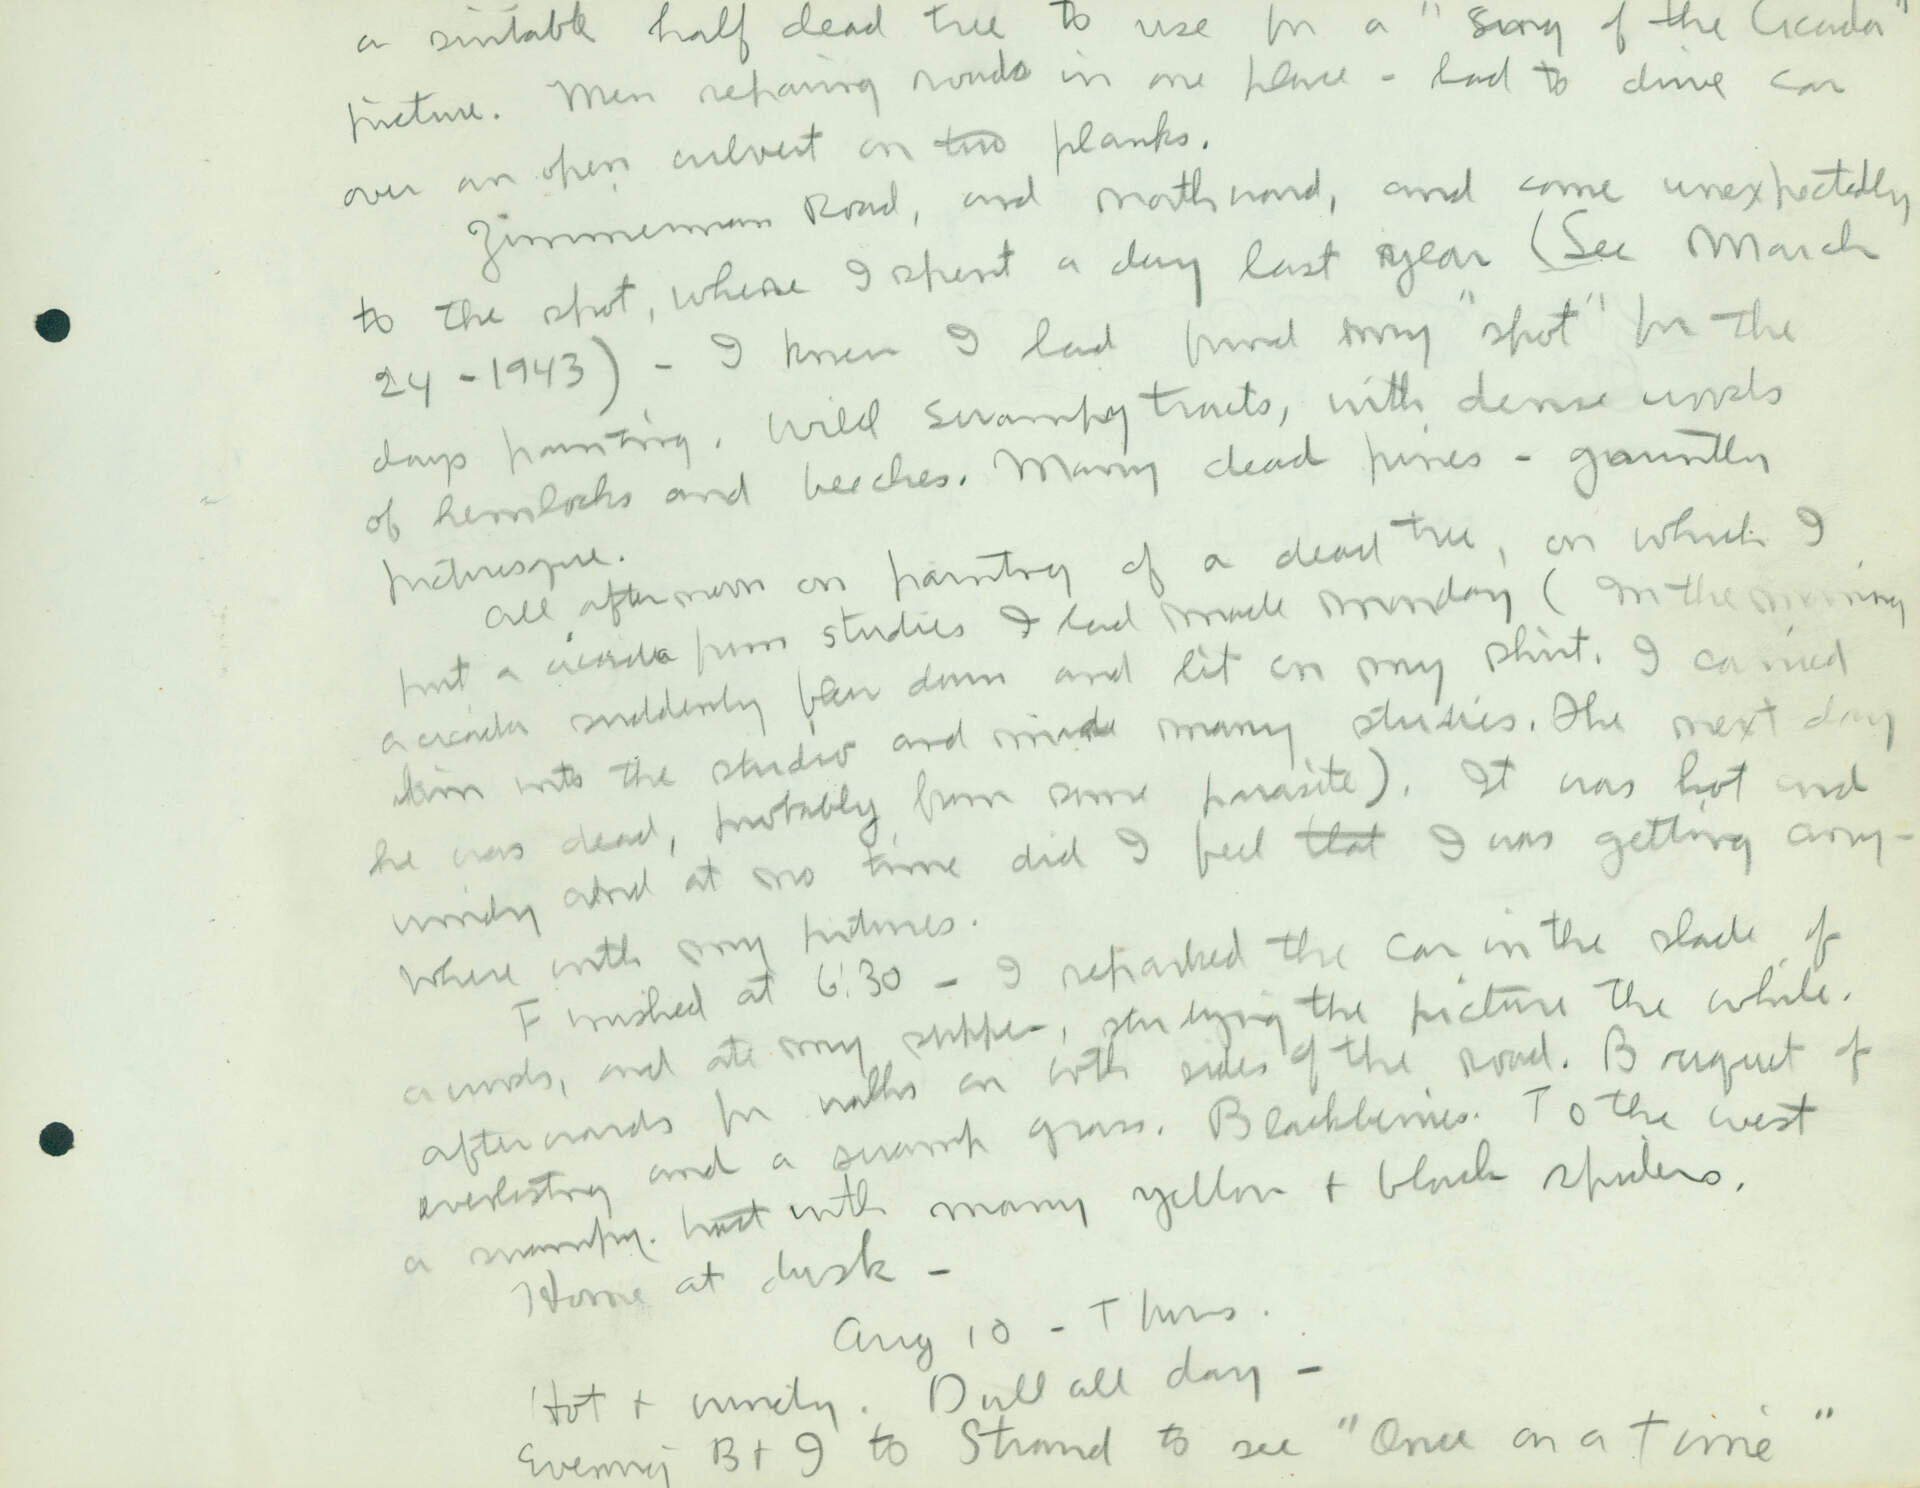 a suitable half dead tree to use for a "Song of the Cicada"
picture. Men repairing roads in one place - had to drive car
over an open culvert on two planks.
Zimmerman Road, and northward, and came unexpectedly
to the spot, where I spent a day last year (See March
24 - 1943) - I knew I had found my "spot" for the
days painting. Wild swampy tracts, with dense woods
of hemlocks and beeches. Many dead pines - gauntly
picturesque.
All afternoon on painting of a dead tree, on which I
put a cicada from studies I had made Monday (In the morning
a cicada suddenly flew down and lit on my shirt. I carried
him into the studio and made many studies. The next day
he was dead, probably from some parasite). It was hot and
windy and at no time did I feel that I was getting any-
where with my pictures.
Finished at 6:30 - I reparked the car in the shade of
a woods, and ate my supper, studying the picture the while.
Afterwards for walks on both sides of the road. Bouquet of
everlasting and a swamp grass. Blackberries. To the west
a swampy. with many yellow + black spiders.
Home at dusk -
Aug 10 - Thurs.
Hot + windy. Dull all day -
Evening B + I to Strand to see "Once on a Time"